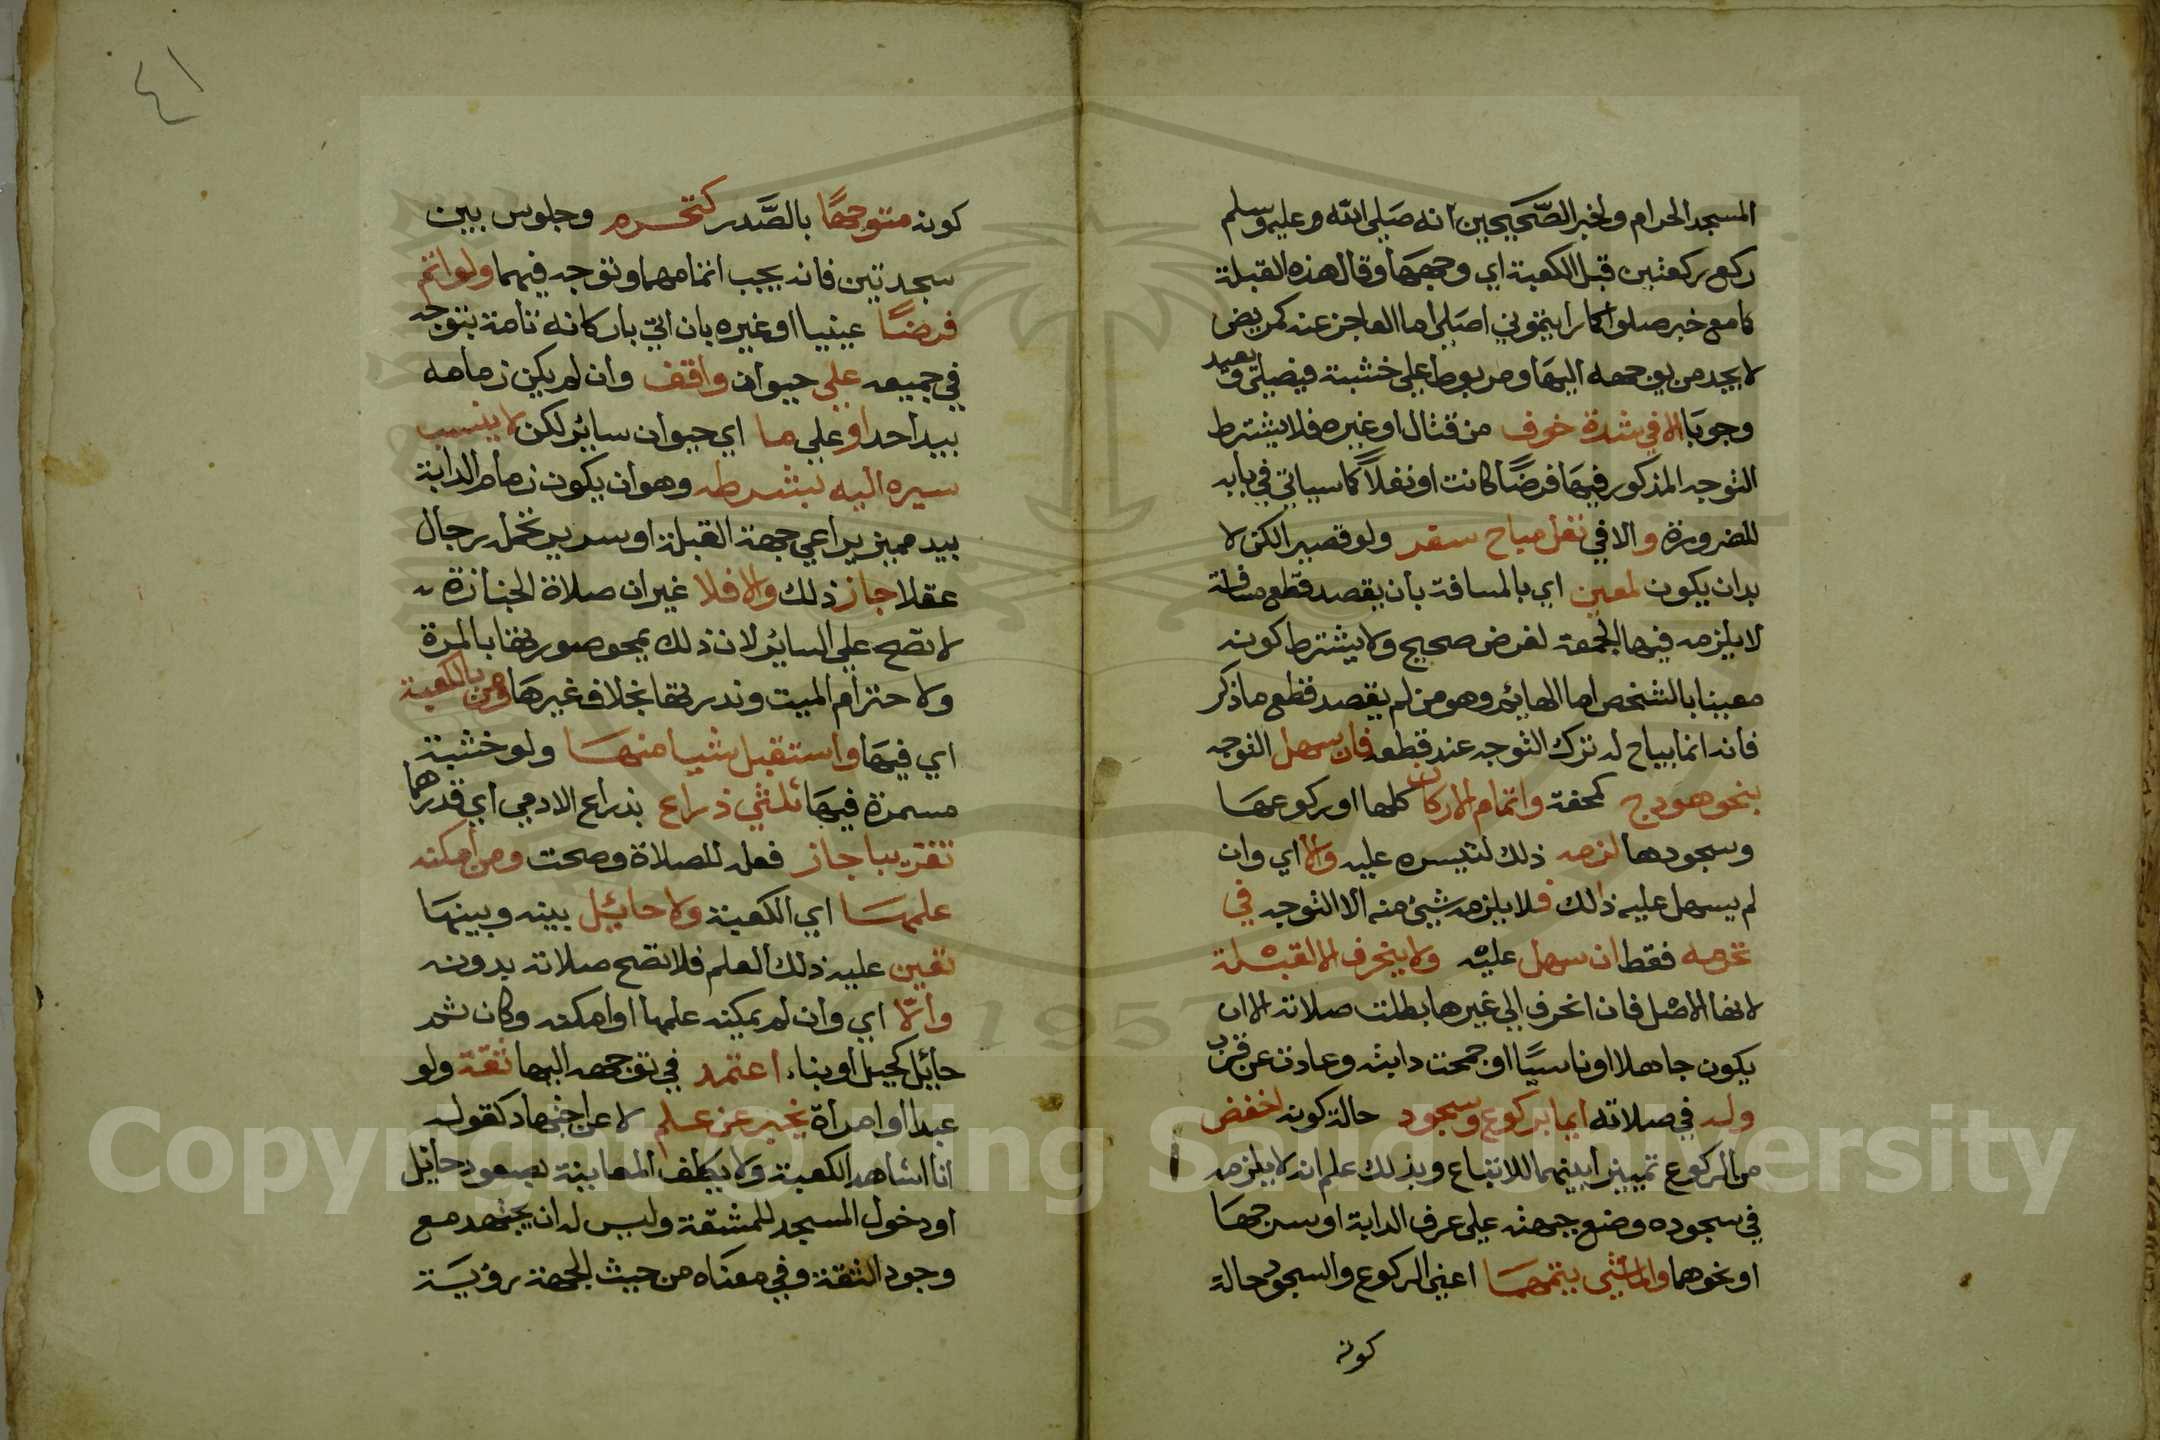 المسجد الحرام ولخبر الصحيحين انه صلي الله وعليه وسلم
ركع ركعتين قبل الكعبة اي وجهها وقال هذه القبلة
مع خبر صلوا كما رايتموني اصلي اما العاجز عنه كمريض
لا يجد من يوجهه اليها ومربوط علي خشبة فيصلي ويعيد
وجوبا الا في شدة خوف من قتال او غيره فلا يشترط
التوجه المذكور فيها فرضًا كانت او نفلاً كما سياتي في بابه
للضرورة والا في نفل مباح سفر ولو قصير الكن لا
بد ان يكون لمعين اي بالمسافة بان يقصد قطع مسافة
لا يلزمه فيها الجمعة لغرض صحيح ولا يشترط كونه
معينا بالشخص اما الهايم وهو من لم يقصد قطع ما ذكر
فانه انما يباح له ترك التوجه عند قطعه فان سهل التوجه
بنحو هودج كمحفة واتمام الاركان كلها او ركوعها
وسجودها لزمه ذلك لتيسره عليه والا اي وان
لم يسهل عليه ذالك فلا يلزمه شيئ منه الا التوجه في
تحرمه فقط ان سهل عليه ولا ينحرف الا لقبلة
لانها الاصل فان انحرف الي غيرها بطلت صلاته الا ان
يكون جاهلا او ناسيًا او جمحت دابته وعادت عن قرب
وله في صلاته ايما بركوع وسجود حالة كونه اخفض
من الركوع تمييزا بينهما للاتباع وبذلك علم انه لا يلزمه
في سجوده وضع جبهته علي عرف الدابة او سرجها
او نحوهما والماشي يتمهما اعني الركوع والسجود حالة
كونه
٤١
كونه متوجهًا بالصَّدر كتحرمه وجلوس بين
سجدتين فانه يجب اتمامهما وتوجه فيهما ولو اتم
فرضًا عينيا او غيره بان اتي باركانه تامة بتوجه
في جميعه علي حيوان واقف وان لم يكن زمامه
بيد احد او علي ما اي حيوان سائر لكن لا ينسب
سيره اليه بشرطه وهو ان يكون زمام الدابة
بيد مميز يراعي جهة القبلة او سرير تحمله رجال
عقلا جاز ذلك والا فلا غير ان صلاة الجنازة
لا تصح علي السائر لان ذلك يمحو صورتها بالمرة
ولاحترام الميت وندرتها بخلاف غيرها ومن بالكعبة
اي فيها واستقبل شيا منها ولو خشبة
مسمرة فيها ثلثي ذراع بذراع الادمي اي قدرها
تقريبا جاز فعله للصلاة وصحت ومن امكنه
علمها اي الكعبة ولا حائل بينه وبينها
تعين عليه ذلك العلم فلا تصح صلاته بدونه
والّا اي وان لم يمكنه علمها او امكنه وكان ثم
حائل كجبل او بناء اعتمد في توجهه اليها ثقة ولو
عبدا او امراة يخبر عن علم لا عن اجتهاد كقوله
انا اشاهد الكعبة ولا يكلف المعاينة بصعود حائل
او دخول المسجد للمشقة وليس له ان يجتهد مع
وجود الثقة وفي معناه من حيث الجهة رؤية
Copyright © King Saud University
1957